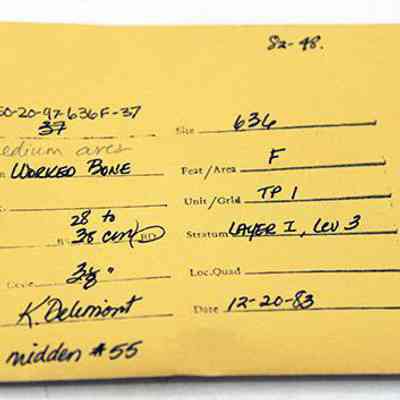 82-48.
50-20-97-636F-37
37 Site 636
medium aves
WORKED BONE Feat/Area F
Unit/Grid TP 1
28 to
38 cm BD Stratum LAYER I, Lev 3
Loc.Quad
K Delimont Date 12-20-83
midden #55